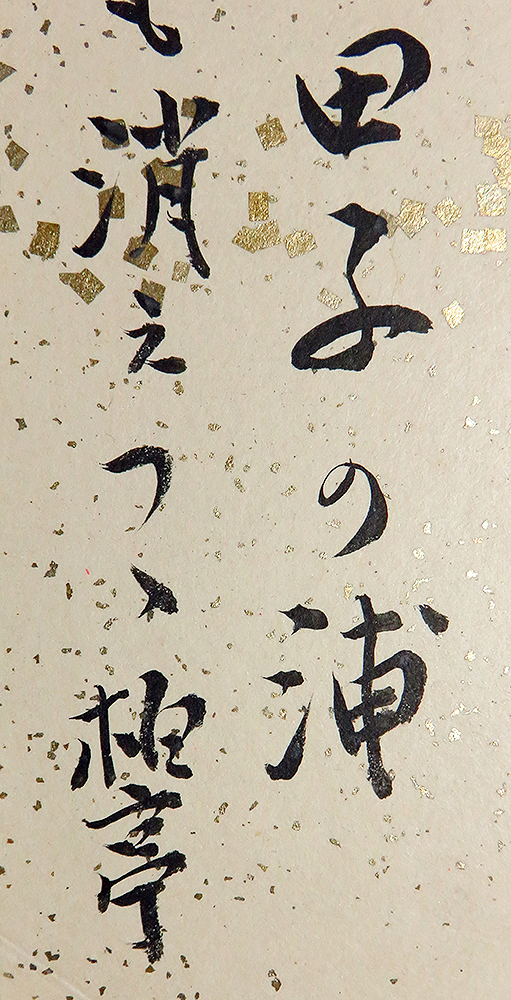 田子の浦
も消えつゝ柏亭